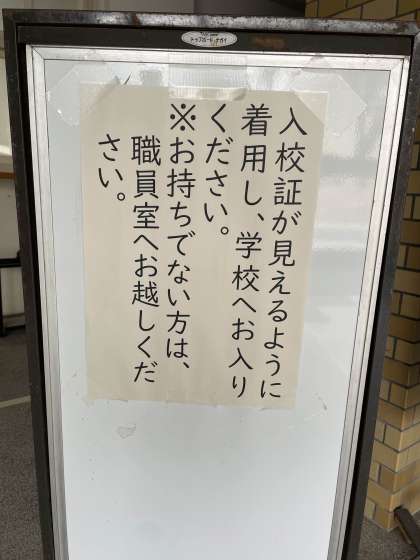 トップボード・ナガイ
入校証が見えるように
着用し、学校へお入り
ください。
※お持ちでない方は、
職員室へお越しくだ
さい。